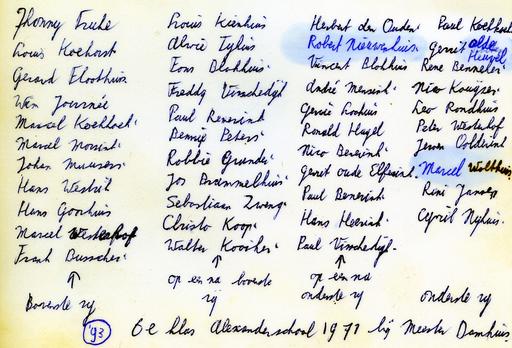 Jhonny Fruke
Louis Koehorst
Gerard Floothuis
Wen Journée
Marcel Koekhoek
Marcel Morsink
Johan Muusers
Hans Wesbit
Hans Goorhuis
Marcel Westerhof
Frank Busscher
↑
Bovenste rij
Louis Kienhuis
Alwie Tylius
Fons Blokhuis
Freddy Visschedijk
Paul Reverink
Bennie Peters
Robbie Grunder
Jos Brummelhuis
Sebastiaan Zweng
Christo Koop
Walter Kooiker
↑
op een na bovenste
rij
Herbert den Ouden
Robert Nieuwenhuis
Vincent Blokhuis
André Mensink
Gerrie Lohuis
Ronald Hugel
Nico Beverink
Gerrit oude Elferink
Paul Beverink
Hans Heerink
Paul Visschedijk
↑
op een na
onderste rij
Paul Koekhoek
Gerrit olde Heuvel
Rene Benneker
Nico Kuuper
Leo Rondhuis
Peter Westerhof
Jeroen Oolderink
Marcel Wolthuis
Rini Jansen
Cyriel Nyhuis
onderste rij
'93 6e klas Alexanderschool 1971 bij Meester Damhuis